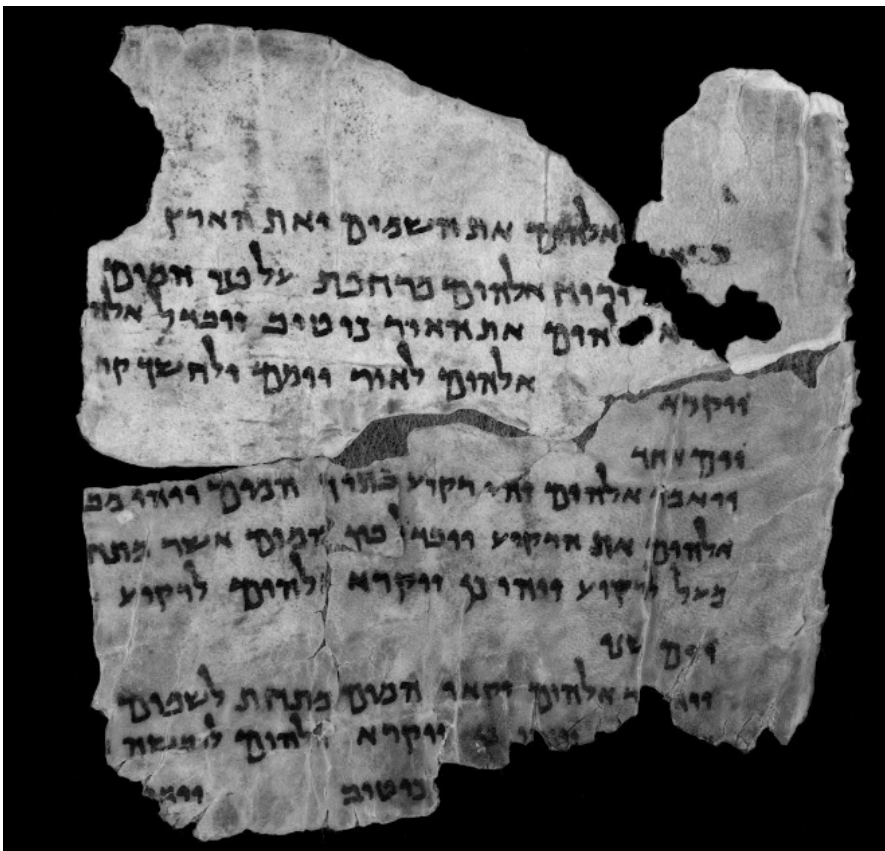 אלהים את השמים ואת הארץ
ורוח אלהים מרחפת על פני המים
אלהים את האור כי טוב ויבדל אלהי
ויקרא אלהים לאור יומם ולחשך קר
יום אחד
ויאמר אלהים יהי רקיע בתוך המים ויהי מב
אלהים את הרקיע ויבדל בין המים אשר מתח
מעל לרקיע ויהי כן ויקרא אלהים לרקיע
יום שני
אלהים יקאו המים מתחת לשמים
כן ויקרא אלהים ליבשה
כי טוב